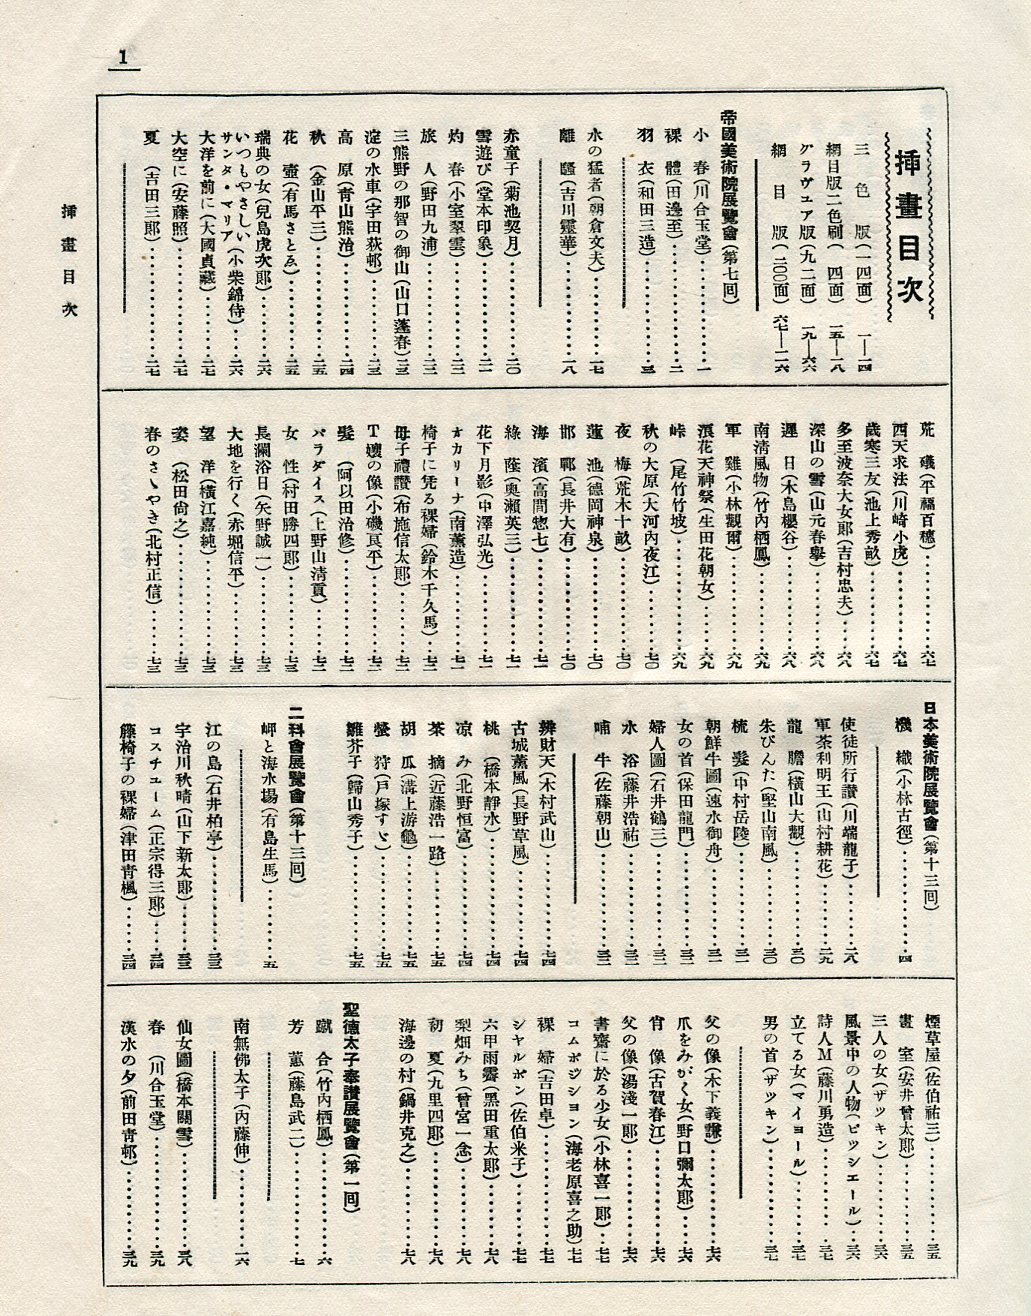 1
挿畫目次
三色版(一四面) 一—一四
網目版二色刷(四面) 一五—一八
グラヴユア版(九二面) 一九—六六
網目版(二〇〇面) 六七—一二六
帝國美術院展覽會(第七回)
小春(川合玉堂)…一
裸體(田邊至)…二
羽衣(和田三造)…三
木の猛者(朝倉文夫)…一七
離騷(吉川靈華)…一八
赤童子(菊池契月)…二〇
雪遊び(堂本印象)…二一
灼春(小室翠雲)…二三
旅人(野田九浦)…二三
三熊野の那智の御山(山口蓬春)…二三
淀の水車(宇田荻邨)…二三
高原(靑山熊治)…二四
秋(金山平三)…二五
花壺(有馬さとゑ)…二五
瑞典の女(兒島虎次郎)…二六
いつもやさしいサンタ・マリア(小柴錦侍)…二六
大洋を前に(大國貞藏)…二七
大空に(安藤照)…二七
夏(吉田三郎)…二七
荒磯(平福百穗)…六七
西天求法(川崎小虎)…六七
歲寒三友(池上秀畝)…六七
多至波奈大女郎(吉村忠夫)…六八
深山の雪(山元春擧)…六八
遲日(木島櫻谷)…六八
南淸風物(竹內栖鳳)…六九
軍雞(小林觀爾)…六九
浪花天神祭(生田花朝女)…六九
峠(尾竹竹坡)…六九
秋の大原(大河內夜江)…七〇
夜梅(荒木十畝)…七〇
蓮池(德岡神泉)…七〇
邯鄲(長井大有)…七〇
海濱(高間惣七)…七一
綠蔭(奧瀨英三)…七一
花下月影(中澤弘光)…七一
オカリーナ(南薰造)…七一
椅子に凭る裸婦(鈴木千久馬)…七二
母子禮讚(布施信太郎)…七二
T孃の像(小磯良平)…七二
髮(阿以田治修)…七二
パラダイス(上野山淸貢)…七二
女性(村田勝四郎)…七三
長瀾浴日(矢野誠一)…七三
大地を行く(赤堀信平)…七三
望洋(横江嘉純)…七三
姿(松田尙之)…七三
春のさゝやき(北村正信)…七三
日本美術院展覽會(第十三回)
機織(小林古徑)…四
使徒所行讚(川端龍子)…二八
軍茶利明王(山村耕花)…二九
龍膽(橫山大觀)…三〇
朱びんた(堅山南風)…三〇
梳髮(中村岳陵)…三一
朝鮮牛圖(速水御舟)…三一
女の首(保田龍門)…三二
婦人圖(石井鶴三)…三二
水浴(藤井浩祐)…三二
哺牛(佐藤朝山)…三二
辨財天(木村武山)…七四
古城薰風(長野草風)…七四
桃(橋本靜水)…七四
凉み(北野恒富)…七四
茶摘(近藤浩一路)…七五
胡瓜(溝上游龜)…七五
螢狩(戶塚すゞ)…七五
雛芥子(歸山秀子)…七五
二科會展覽會(第十三回)
岬と海水場(有島生馬)…五
江の島(石井柏亭)…三三
宇治川秋晴(山下新太郎)…三三
コスチユーム(正宗得三郎)…三四
籐椅子の裸婦(津田靑楓)…三四
煙草屋(佐伯祐三)…三五
畫室(安井曾太郎)…三五
三人の女(ザツキン)…三六
風景中の人物(ビツシエール)…三六
詩人M(藤川勇造)…三七
立てる女(マイヨール)…三七
男の首(ザツキン)…三七
父の像(木下義謙)…七六
爪をみがく女(野口彌太郎)…七六
肖像(古賀春江)…七六
父の像(湯淺一郎)…七六
書齋に於る少女(小林喜一郎)…七七
コムポジシヨン(海老原喜之助)…七七
裸婦(吉田卓)…七七
シヤルポン(佐伯米子)…七七
六甲雨霽(黑田重太郎)…七八
梨畑みち(曾宮一念)…七八
初夏(九里四郎)…七八
海邊の村(鍋井克之)…七八
聖德太子奉讚展覽會(第一回)
蹴合(竹內栖鳳)…六
芳蕙(藤島武二)…七
南無佛太子(內藤伸)…一六
仙女圖(橋本關雪)…三八
春(川合玉堂)…三九
漢水の夕(前田靑邨)…三九
挿畫目次